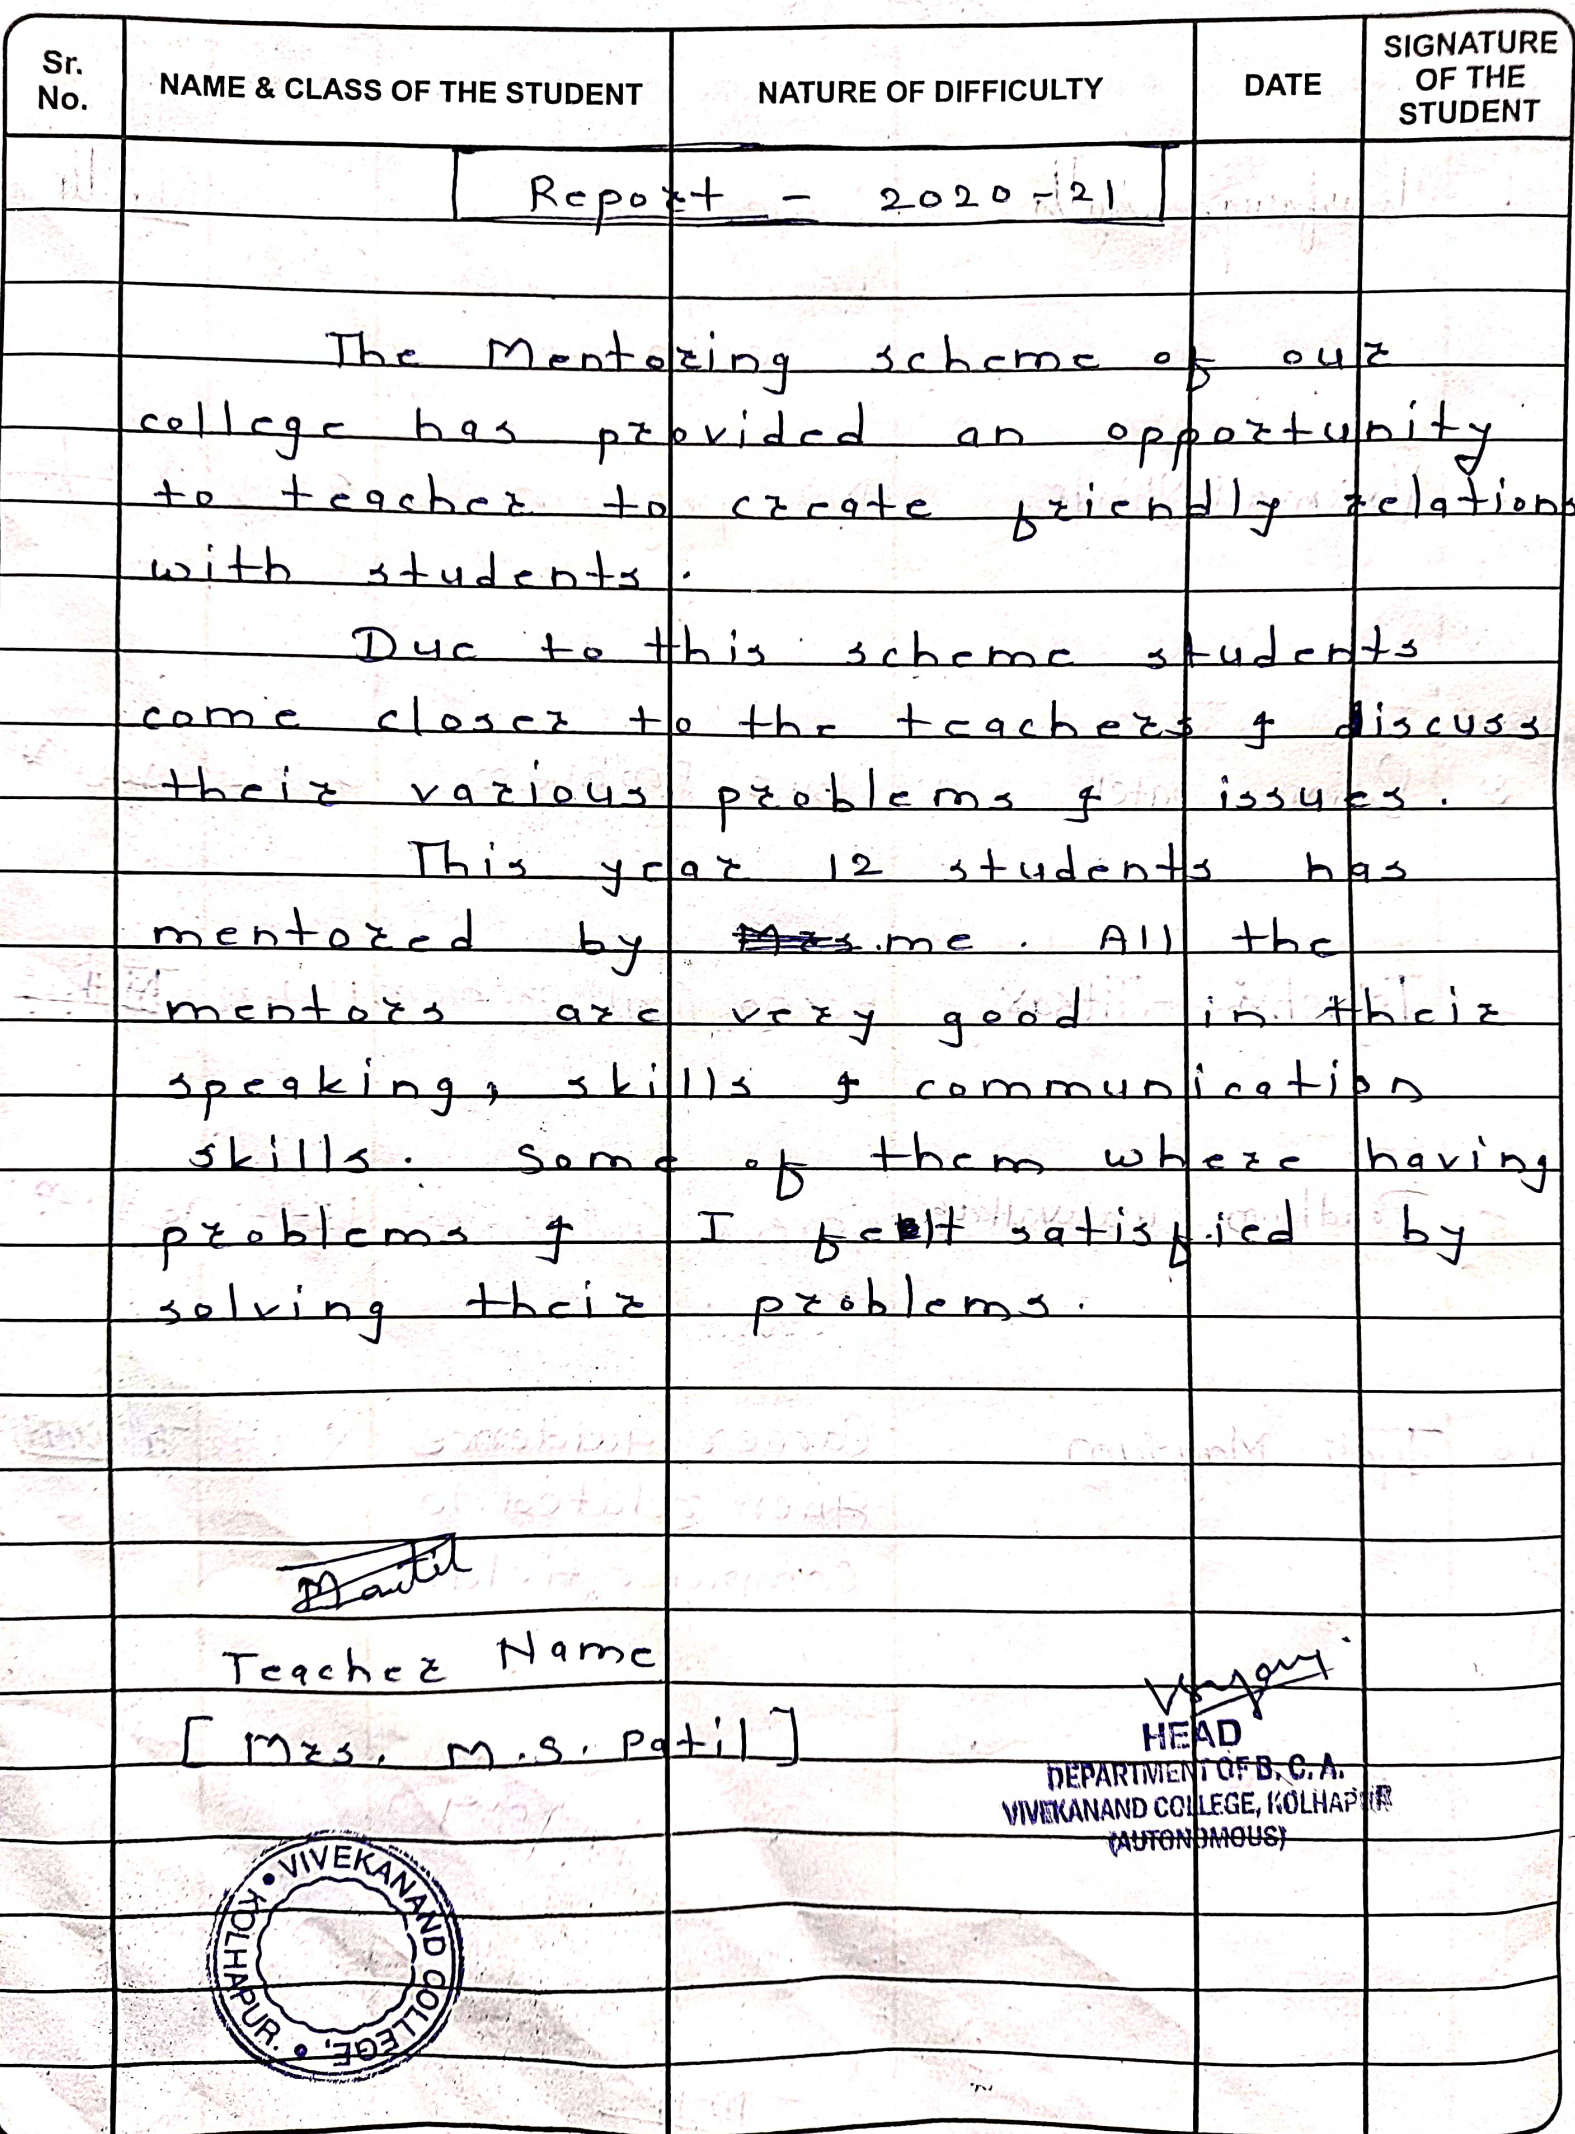 Sr. No.
NAME & CLASS OF THE STUDENT
NATURE OF DIFFICULTY
DATE
SIGNATURE OF THE STUDENT
Report - 2020-21
The Mentoring scheme of our
college has provided an opportunity
to teacher to create friendly relations
with students.
Due to this scheme students
come closer to the teachers & discuss
their various problems & issues.
This year 12 students has
mentored by Mrs. me. All the
mentors are very good in their
speaking, skills & communication
skills. Some of them where having
problems & I felt satisfied by
solving their problems.
Teacher Name
[Mrs. M.S. Patil]
HEAD
DEPARTMENT OF B. C. A.
VIVEKANAND COLLEGE, KOLHAPUR
(AUTONOMOUS)
VIVEKANAND COLLEGE, KOLHAPUR.